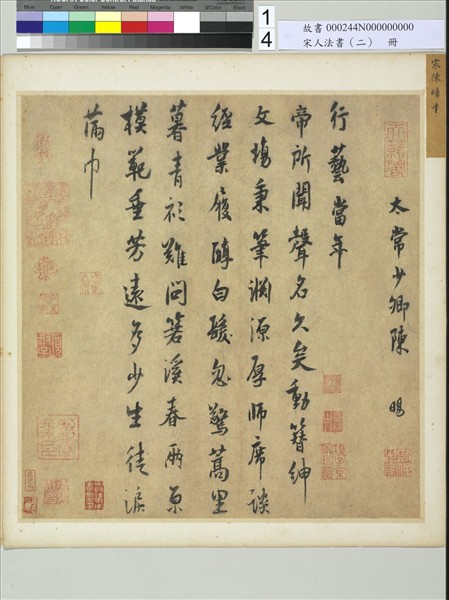 Blue Cyan Green Yellow Red Magenta White 3/Color Black
1
4
故書 000244N000000000
宋人法書（二） 冊
太常少卿陳 暘
行藝當年
帝所聞聲名久矣動簪紳
文場秉筆淵源厚師席談
經業履醇白髮忽驚蒿里
暮青衫難問箬溪春兩京
模範垂芳遠多少生徒淚
滿巾